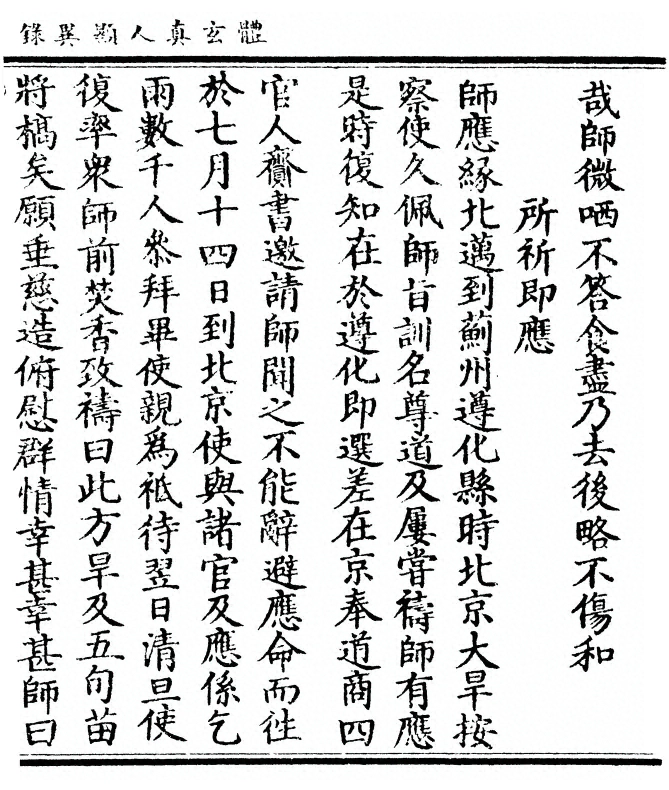 體玄真人顯異錄
哉師微哂不答食盡乃去後略不傷和
所祈即應
師應緣北邁到薊州遵化縣時北京大旱按
察使久佩師旨訓名尊道及屢嘗禱師有應
是時復知在於遵化即選差在京奉道商四
官人齎書邀請師聞之不能辭避應命而徃
於七月十四日到北京使與諸官及應係乞
雨數千人叅拜畢使親爲祗待翌日清旦使
復率衆師前焚香致禱曰此方旱及五旬苗
將槁矣願垂慈造俯慰群情幸甚幸甚師曰